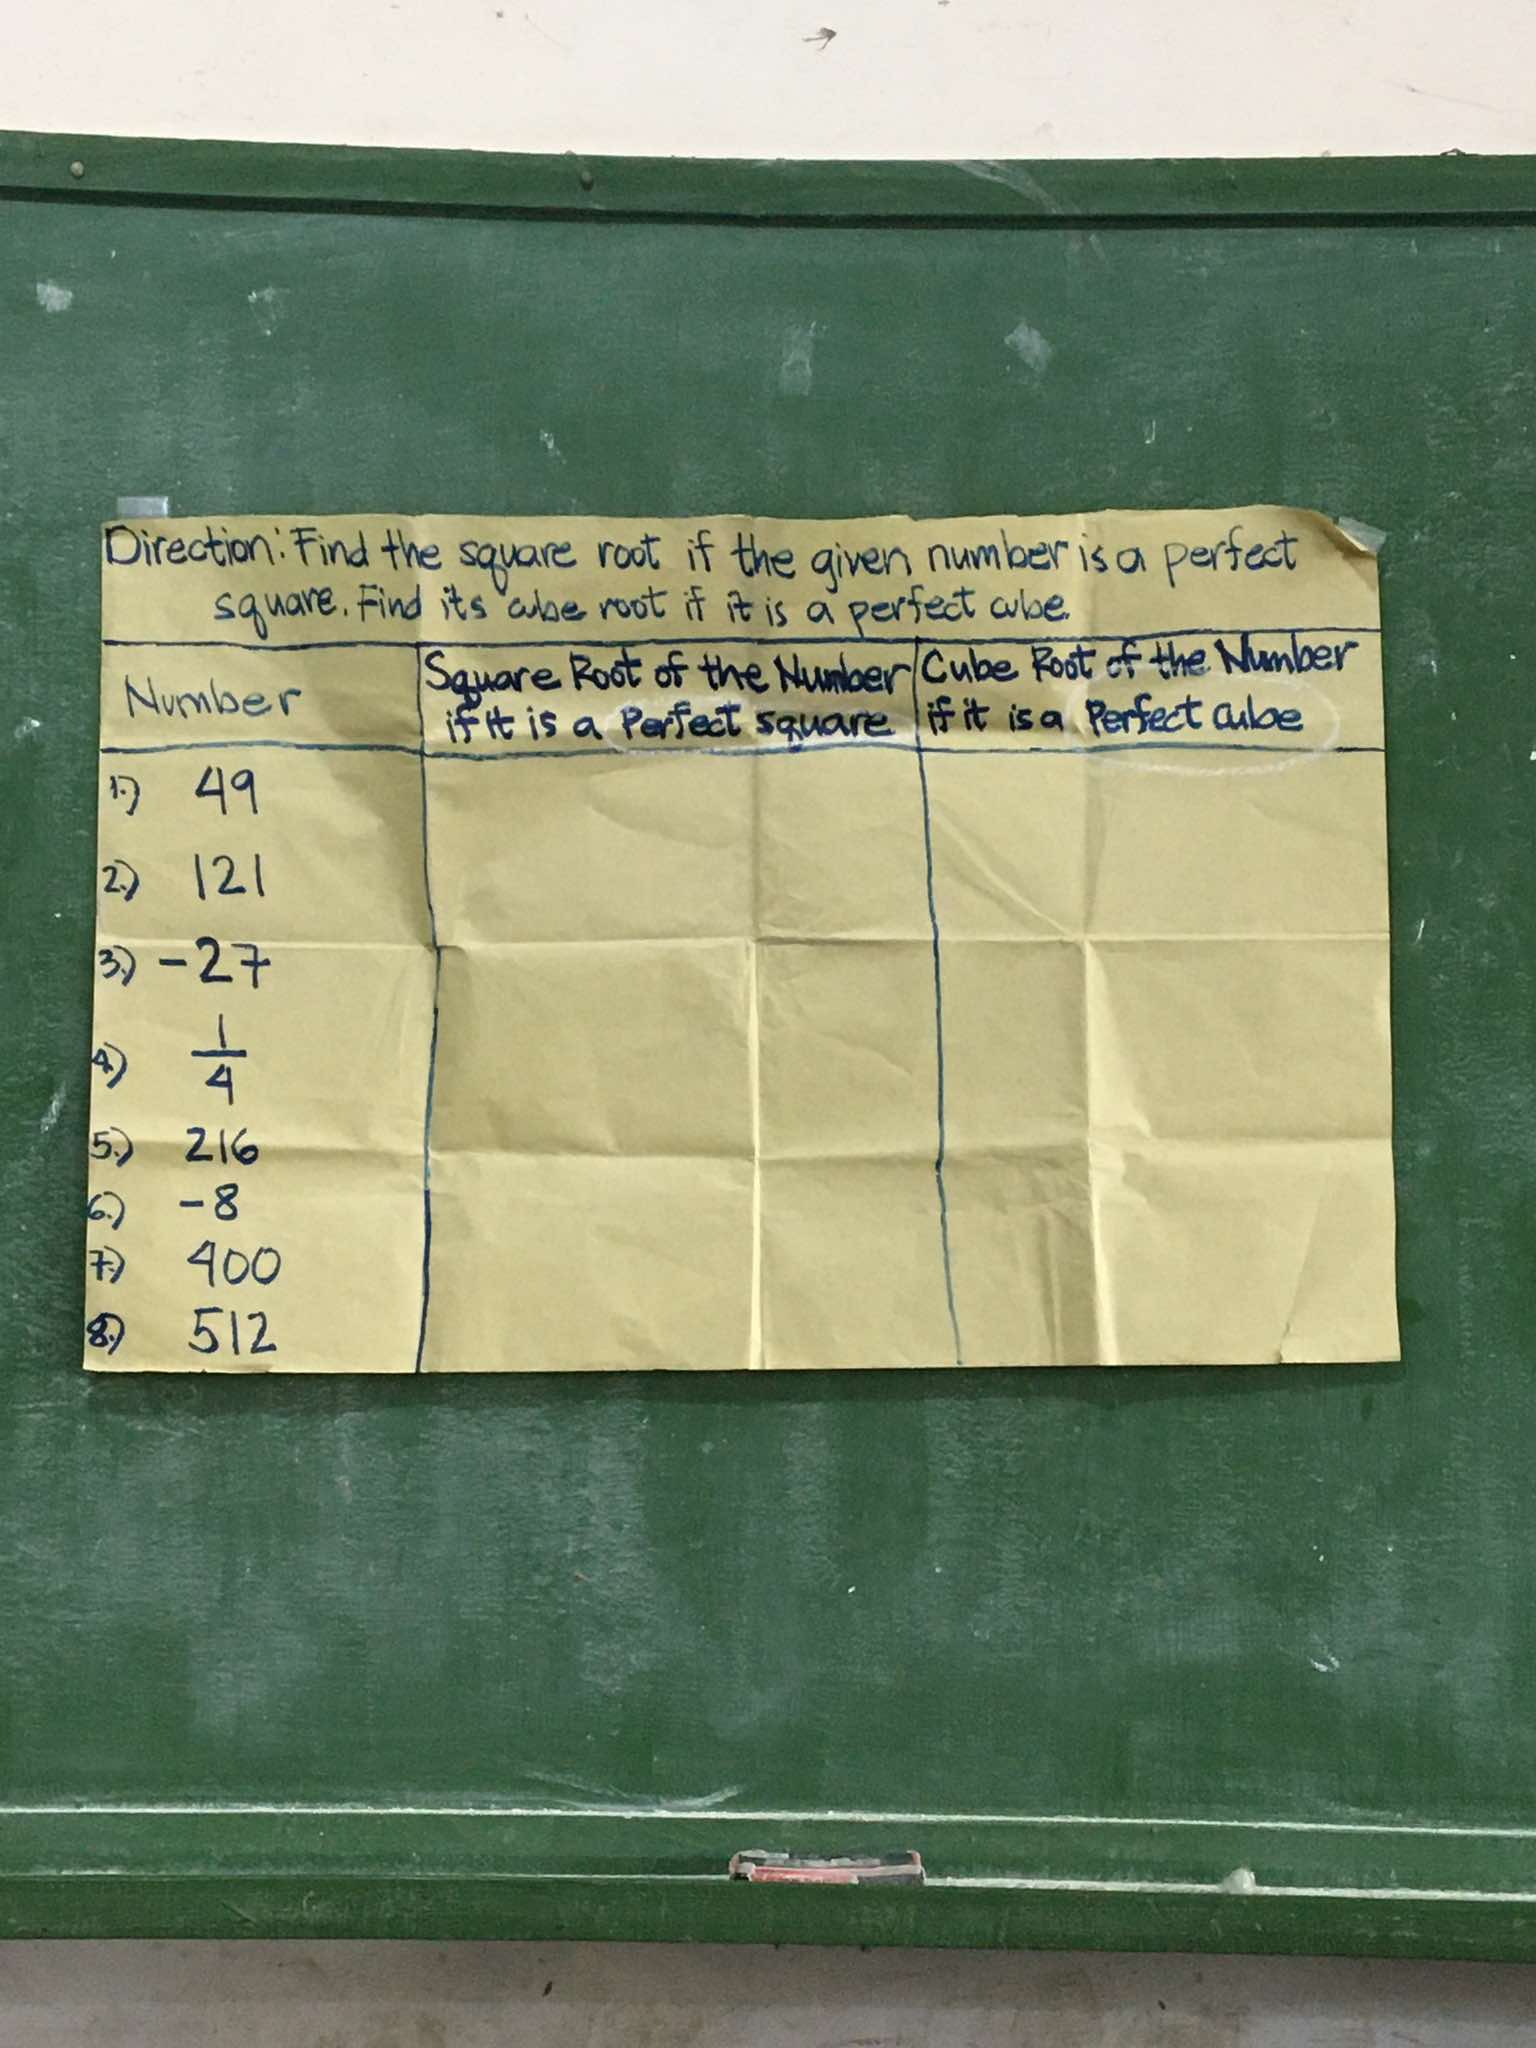 Direction: Find the square root if the given number is a perfect
square. Find its cube root if it is a perfect cube.
Number
Square Root of the Number
if it is a Perfect square
Cube Root of the Number
if it is a Perfect Cube
1.) 49
2.) 121
3.) -27
4.) 1/4
5.) 216
6.) -8
7.) 400
8.) 512